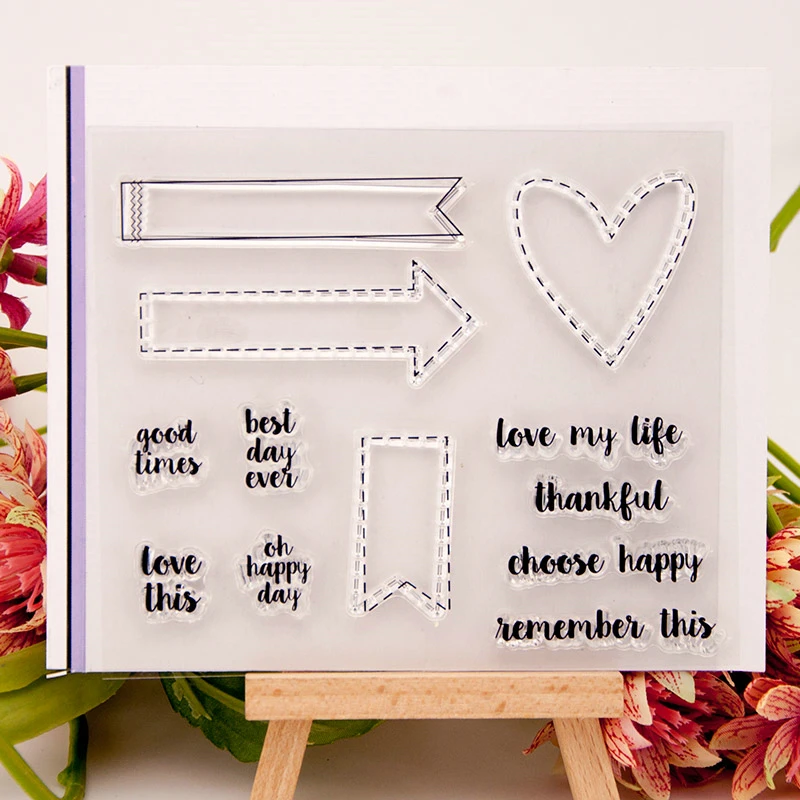 good
times
best
day
ever
love
this
oh
happy
day
love my life
thankful
choose happy
remember this